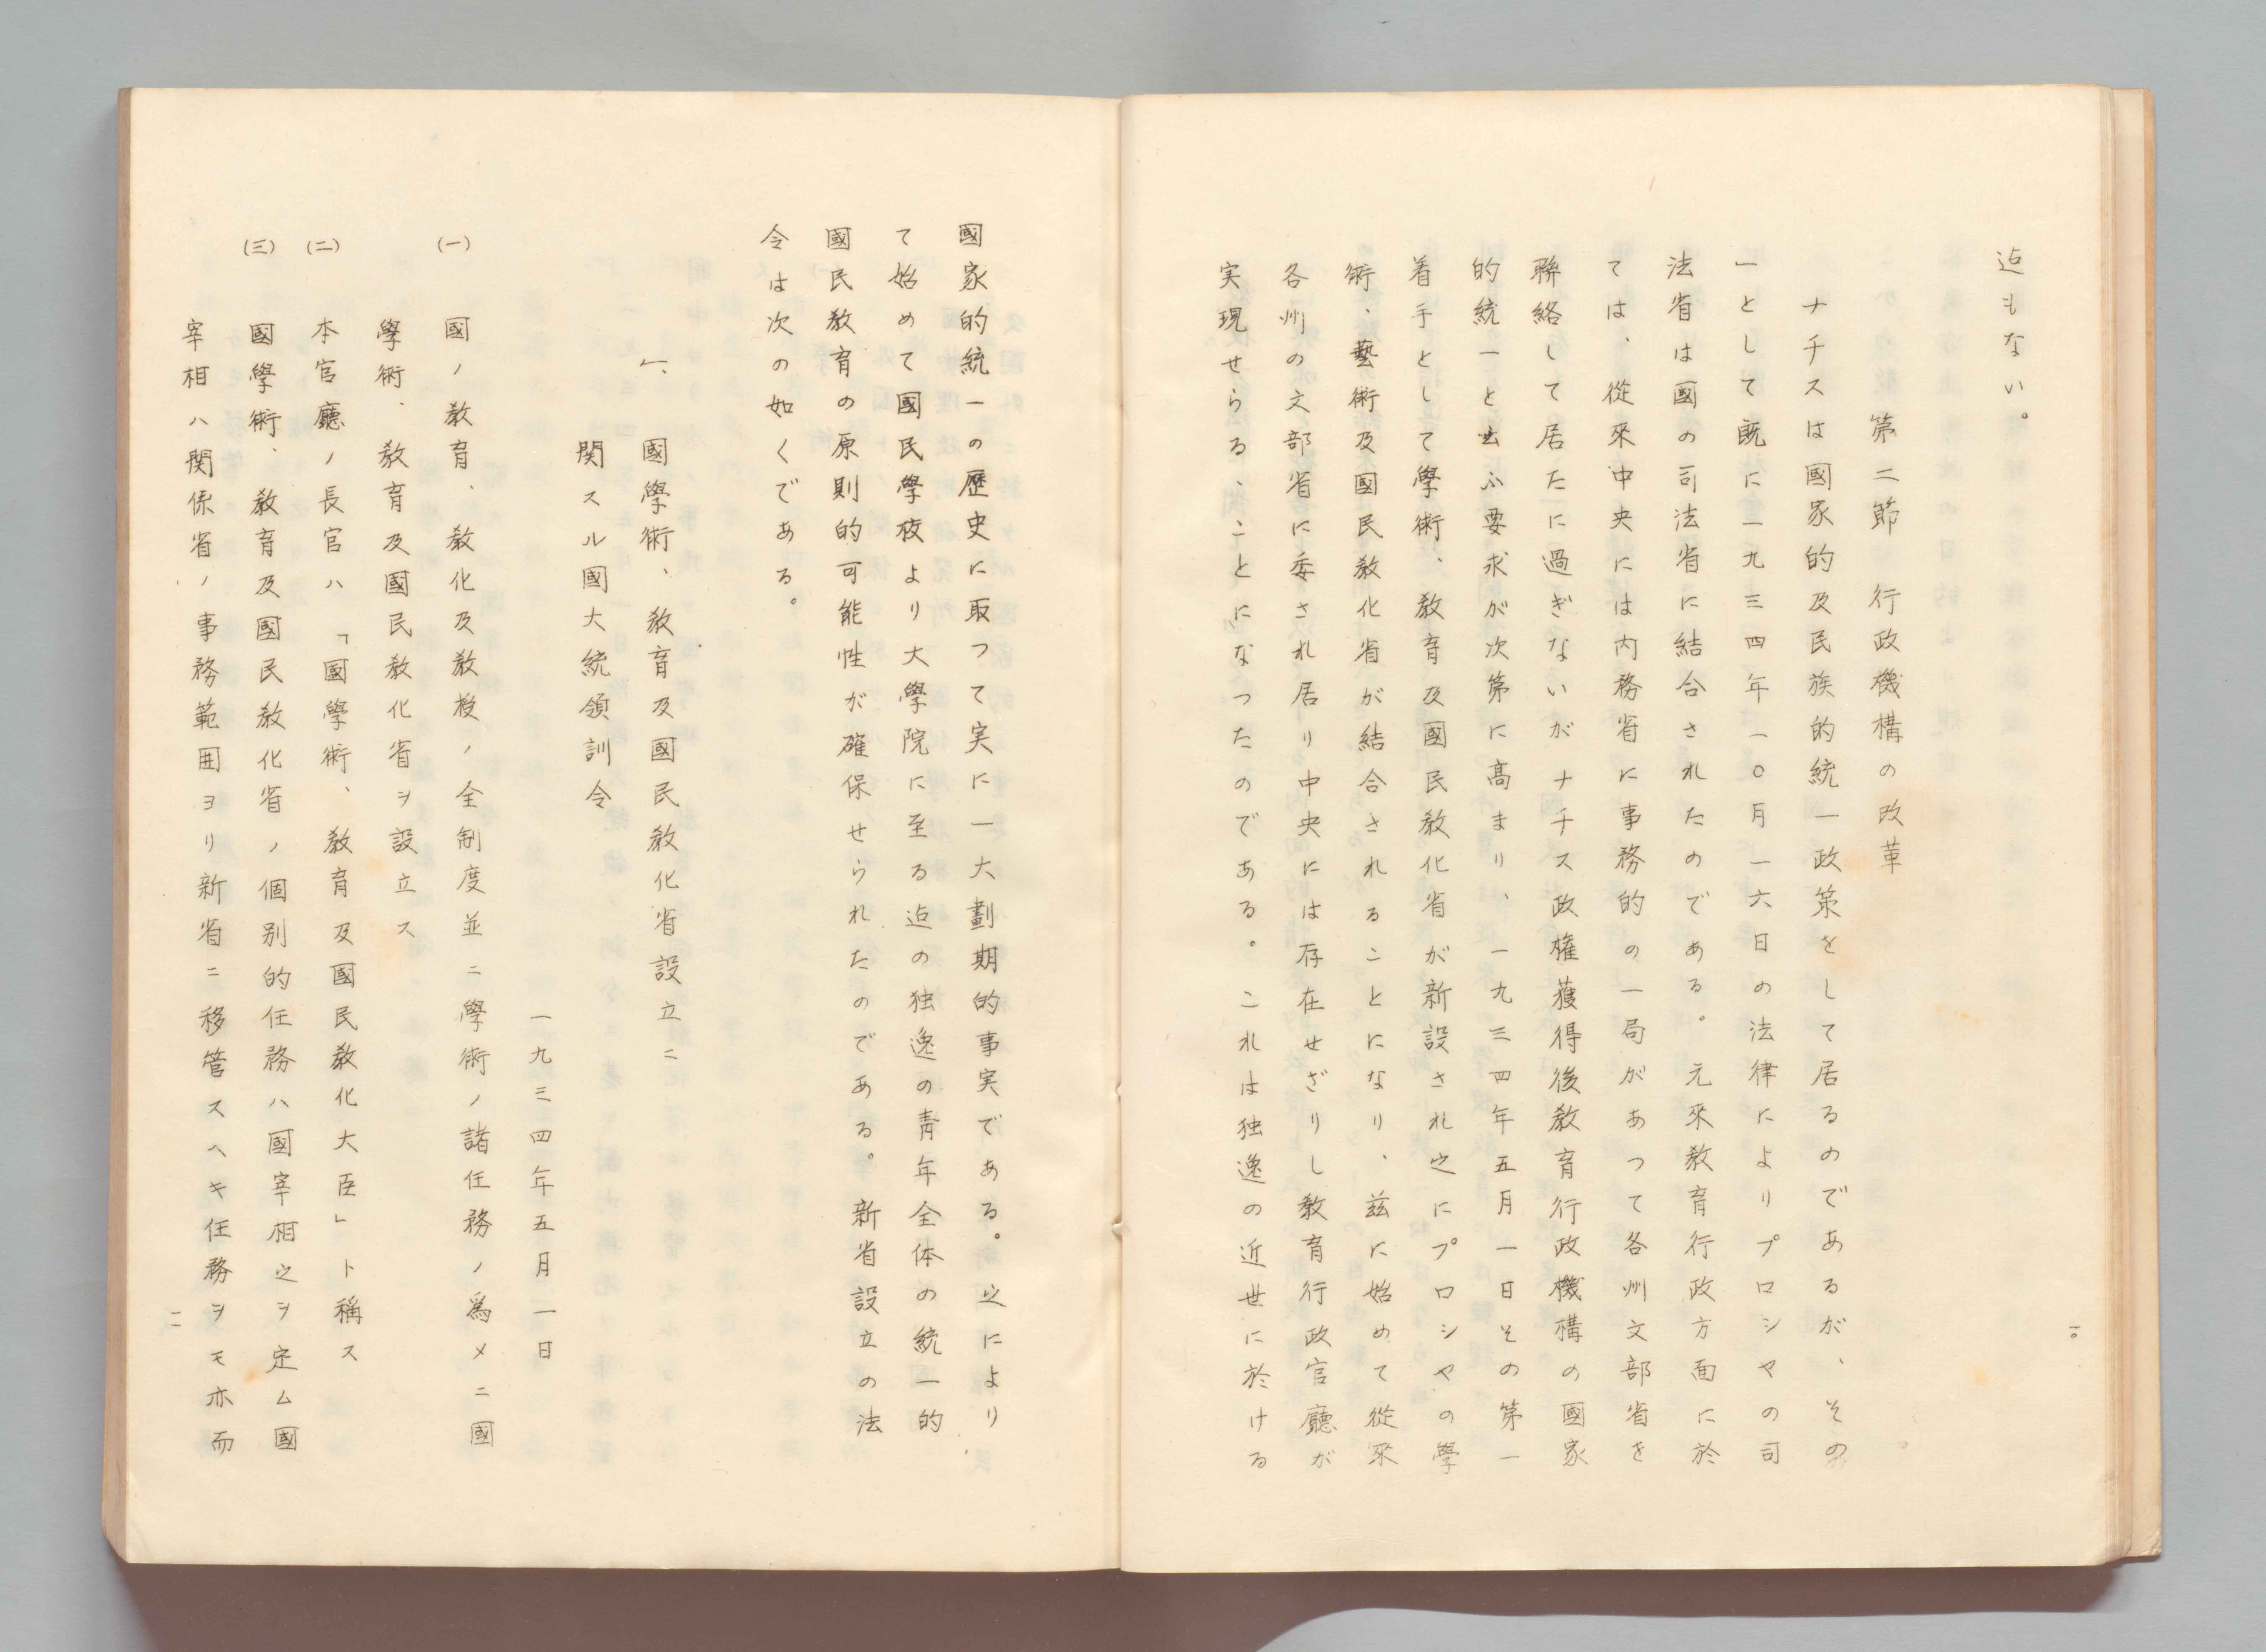 迄もない。
第二節　行政機構の改革
ナチスは國家的及民族的統一政策をして居るのであるが、その
一として既に一九三四年一〇月一六日の法律によりプロシヤの司
法省は國の司法省に結合されたのである。元來教育行政方面に於
ては、從來中央には内務省に事務的の一局があつて各州文部省を
聯絡して居たに過ぎないがナチス政権獲得後教育行政機構の國家
的統一と云ふ要求が次第に高まり、一九三四年五月一日その第一
着手として學術、教育及國民教化省が新設され之にプロシヤの學
術、藝術及國民教化省が結合されることになり、茲に始めて從來
各州の文部省に委され居り中央には存在せざりし教育行政官廳が
実現せらる、ことになつたのである。これは独逸の近世に於ける
一〇
國家的統一の歴史に取つて実に一大劃期的事実である。之により
て始めて國民學校より大學院に至る迄の独逸の青年全体の統一的
國民教育の原則的可能性が確保せられたのである。新省設立の法
令は次の如くである。
一、國學術、教育及國民教化省設立ニ
関スル國大統領訓令
一九三四年五月一日
(一)　國ノ教育、教化及教授ノ全制度並ニ學術ノ諸任務ノ爲メニ國
學術、教育及國民教化省ヲ設立ス
(二)　本官廳ノ長官ハ「國學術、教育及國民教化大臣」ト稱ス
(三)　國學術、教育及國民教化省ノ個別的任務ハ國宰相之ヲ定ム國
宰相ハ関係省ノ事務範囲ヨリ新省ニ移管スヘキ任務ヲモ亦而
一一